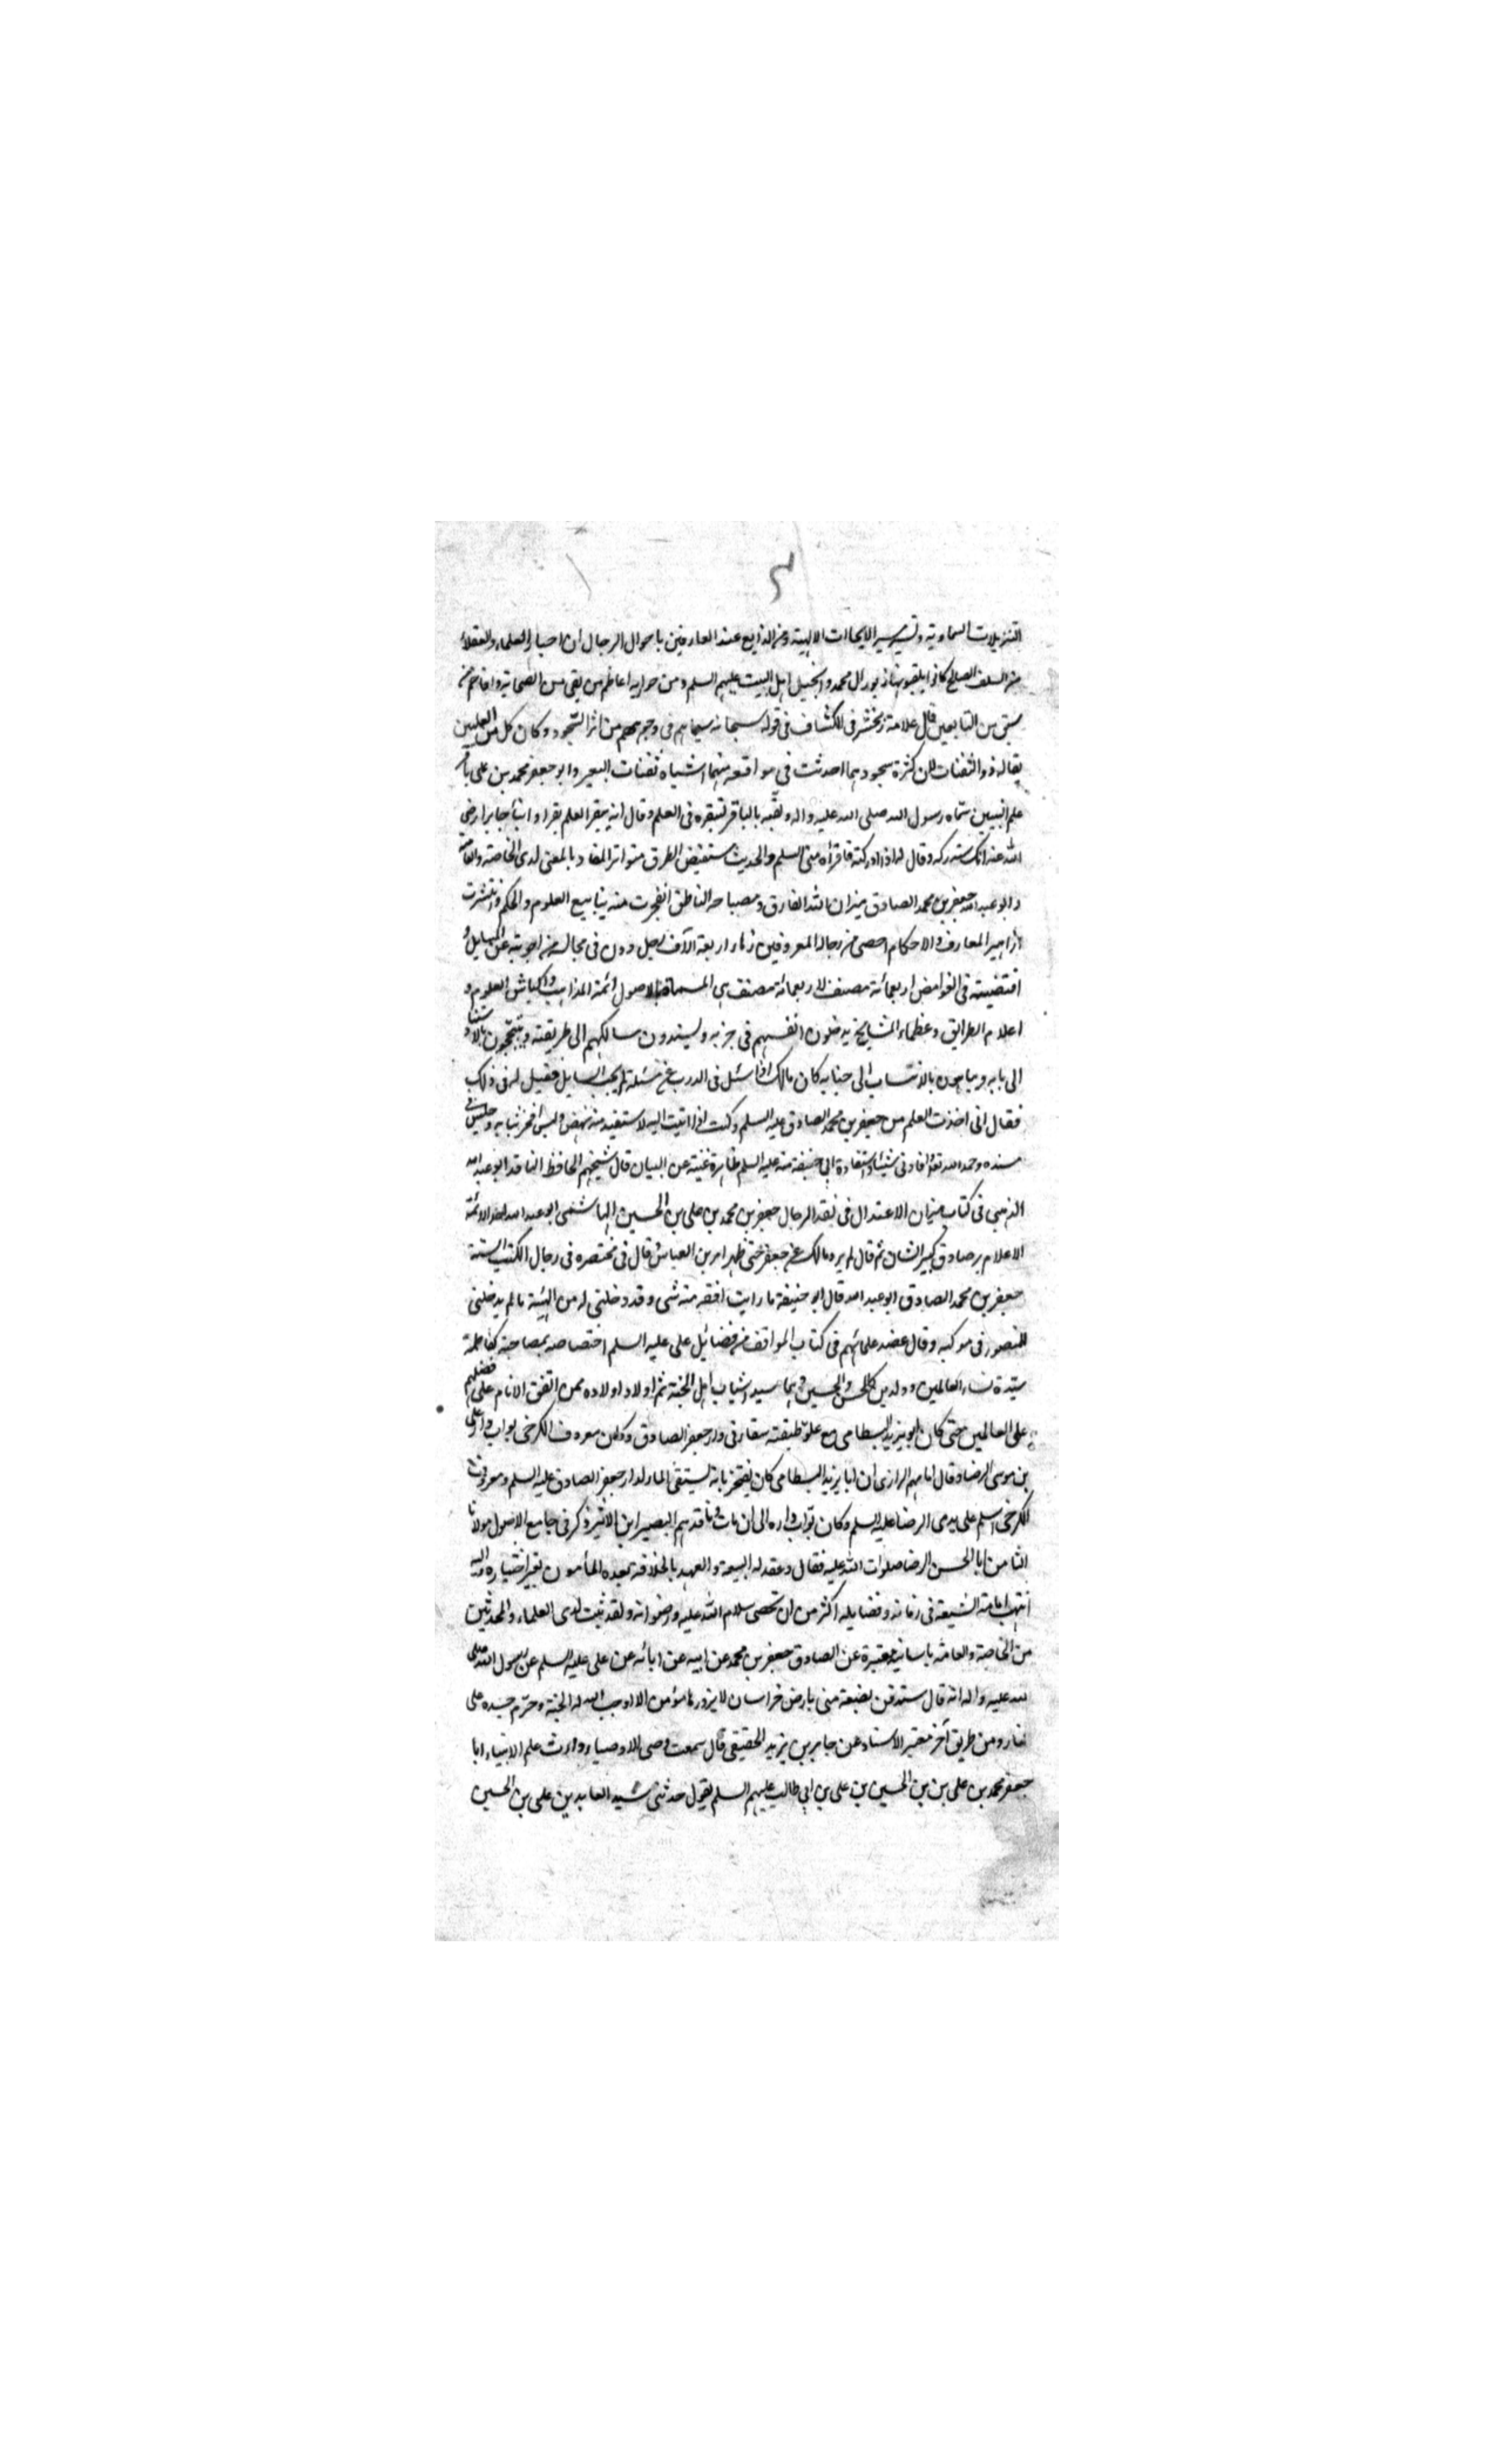 التنزيلات السماوية وتفسير الايحاات الالهية ومن الذايع عند العارفين باحوال الرجال ان احبار العلماء والعقلاء
من السلف الصالح كانوا يلقبونها زبور ال محمد وانجيل اهل البيت عليهم السلم ومن حواريه اعاظم من بقى من الصحابة وافاخم من
سبق من التابعين قال علامة زمخشر فى الكشاف فى قوله سبحانه سيماهم فى وجوههم من اثر السجود وكان كل من العليين
يقال له ذو الثفنات لان كثرة سجودهما احدثت فى مواقعه منهما اشباه ثفنات البعير وابو جعفر محمد بن على باقر
علم النبيين سماه رسول الله صلى الله عليه واله ولقبه بالباقر لتبقره فى العلم وقال انه يبقر العلم بقرا وانبأ جابرا رضى
الله عنه انك ستدركه وقال له اذا ادركته فاقرأه منى السلم والحديث مستفيض الطرق متواتر المفاد بالمعنى لدى الخاصة والعامة
وابو عبد الله جعفر بن محمد الصادق ميزان الله الفارق ومصباحه الناطق انفجرت منه ينابيع العلوم والحكم وانتشرت
ازاهير المعارف والاحكام احصى من رجاله المعروفين زهاء اربعة الآف رجل ودون فى مجالسه من اجوبته عن المسايل و
اقضيته فى الغوامض اربعمائة مصنف لاربعمائة مصنف هى المسماة بالاصول ائمة المذاهب واكباش العلوم و
اعلام الطرايق وعظماء المشايخ يدخلون انفسهم فى حزبه ويسندون مسالكهم الى طريقته ويتبجحون بالاستناد
الى بابه ويباهون بالانتساب الى جنابه كان مالك اذا سئل فى الدرب عن مسئلة لم يجب السايل فقيل له فى ذلك
فقال انى اخذت العلم من جعفر بن محمد الصادق عليه السلم وكنت اذا اتيت اليه لاستفيد منه نهض ولبس افخر ثيابه وجلس فى
مسنده وحمد الله تعالى وافادنى شيئا واستفادة ابى حنيفة منه عليه السلم ظاهرة غنية عن البيان قال شيخهم الحافظ الناقد ابو عبد الله
الذهبى فى كتاب ميزان الاعتدال فى نقد الرجال جعفر بن محمد بن على بن الحسين الهاشمى ابو عبد الله احد الائمة
الاعلام بر صادق كبير الشان ثم قال لم يرو مالك عن جعفر حتى ظهر امر بن العباس وقال فى مختصره فى رجال الكتب الستة
جعفر بن محمد الصادق ابو عبد الله قال ابو حنيفة ما رايت افقه منه شى وقد دخلنى له من الهيبة مالم يدخلنى
للمنصور فى موكبه وقال عضد علمائهم فى كتاب المواقف من فضائل على عليه السلم اختصاصه بمصاحبة كفاطمة
سيدة نساء العالمين وولدين كالحسن والحسين وهما سيدا شباب اهل الجنة ثم اولاد اولاده ممن اتفق الانام على فضلهم
على العالمين حتى كان ابو يزيد البسطامى مع علو طبقته سقا فى دار جعفر الصادق وكان معروف الكرخى بواب دار على
بن موسى الرضا وقال امامهم الرازى ان ابا يزيد البسطامى كان يفتخر بانه يستقى الماء لدار جعفر الصادق عليه السلم ومعروف
الكرخى اسلم على يدى الرضا عليه السلم وكان بواب داره الى ان مات وناقدهم البصير ابن الاثير ذكر فى جامع الاصول مولانا
الثامن ابا الحسن الرضا صلوات الله عليه فقال وعقد له البيعة والعهد بالخلافة بعده المأمون بغير اختياره واليه
انتهت امامة الشيعة فى زمانه وفضايله اكثر من ان تحصى سلام الله عليه ورضوانه ولقد ثبت لدى العلماء والمحدثين
من الخاصة والعامة باسانيد معتبرة عن الصادق جعفر بن محمد عن ابيه عن ابائه عن على عليه السلم عن رسول الله صلى
الله عليه واله انه قال ستدفن بضعة منى بارض خراسان لا يزورها مؤمن الا اوجب الله له الجنة وحرم جسده على
النار ومن طريق آخر معتبر الاسناد عن جابر بن يزيد الجعفى قال سمعت وصى الاوصياء ووارث علم الانبياء ابا
جعفر محمد بن على بن بن الحسين بن على بن ابى طالب عليهم السلم يقول حدثنى سيد العابدين على بن الحسين